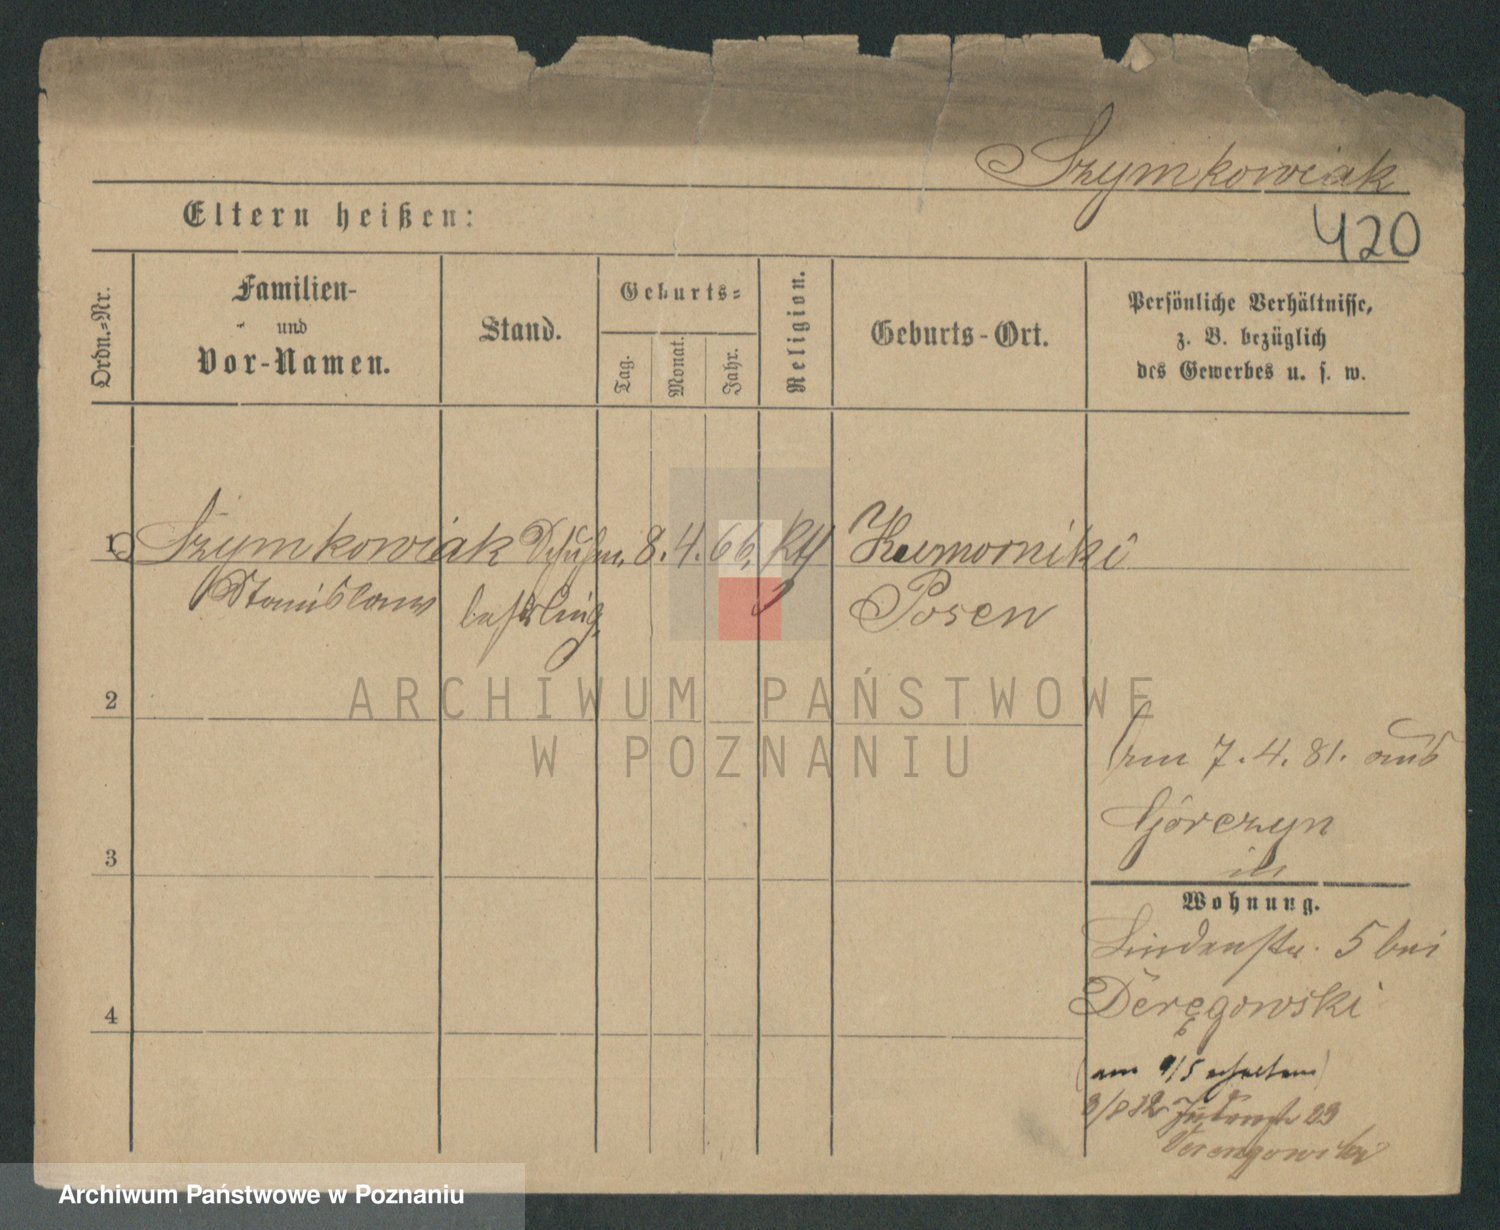 Szymkowiak
420
Eltern heißen:
Ordn.-Nr.
Familien-
und
Vor-Namen.
Stand.
Geburts-
Tag.
Monat.
Jahr.
Religion.
Geburts-Ort.
Persönliche Verhältnisse,
z. B. bezüglich
des Gewerbes u. s. w.
1 Szymkowiak Schuhm. 8. 4. 66. Kth Komorniki
Stanislaus Posen
2
ARCHIWUM PAŃSTWOWE
W POZNANIU
7. 4. 81. aus
Górczyn
in
3
Wohnung.
Lindenstr. 5 bei
Deręgowski
4
(am 9/5 erhalten)
23
Archiwum Państwowe w Poznaniu